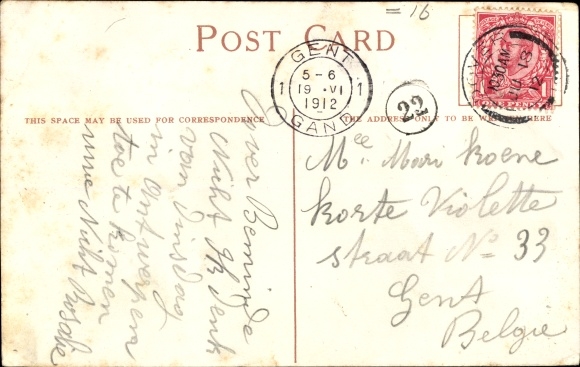 = 16
POST CARD
GENT
5-6
1 19 · VI 1
1912
GAND
22
THIS SPACE MAY BE USED FOR CORRESPONDENCE
THE ADDRESS ONLY TO BE WRITTEN HERE
Zeer Beminde
Nicht Ik Denk
van Dinsdag
in Antwerpen
toe te komen
uwe Nicht Rosalie
Mee Mari Koene
korte Violette
straat No 33
Gent
Belgie